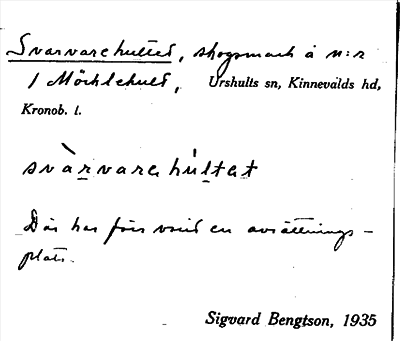 Svarvarehultet, skogsmark å n:r
1 Möcklehult, Urshults sn, Kinnevalds hd,
Kronob. l.
svàrvarehúltet
Där har förr varit en avrättnings-
plats.
Sigvard Bengtson, 1935